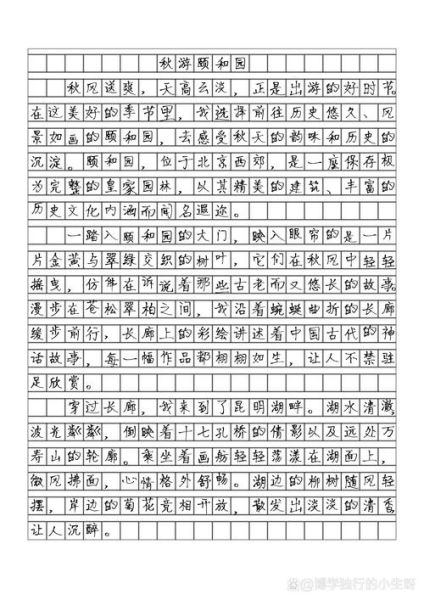 秋游颐和园
秋风送爽，天高云淡，正是出游的好时节。
在这美好的季节里，我选择前往历史悠久、风
景如画的颐和园，去感受秋天的韵味和历史的
沉淀。颐和园，位于北京西郊，是一座保存极
为完整的皇家园林，以其精美的建筑、丰富的
历史文化内涵而闻名遐迩。
一踏入颐和园的大门，映入眼帘的是一片
片金黄与翠绿交织的树叶，它们在秋风中轻轻
摇曳，仿佛在诉说着那些古老而又悠长的故事。
漫步在苍松翠柏之间，我沿着蜿蜒曲折的长廊
缓步前行，长廊上的彩绘讲述着中国古代的神
话故事，每一幅作品都栩栩如生，让人不禁驻
足欣赏。
穿过长廊，我来到了昆明湖畔。湖水清澈，
波光粼粼，倒映着十七孔桥的倩影以及远处万
寿山的轮廓。乘坐着画舫轻轻荡漾在湖面上，
微风拂面，心情格外舒畅。湖边的柳树随风轻
摆，岸边的菊花竞相开放，散发出淡淡的清香，
让人沉醉。
@博学独行的小生呀